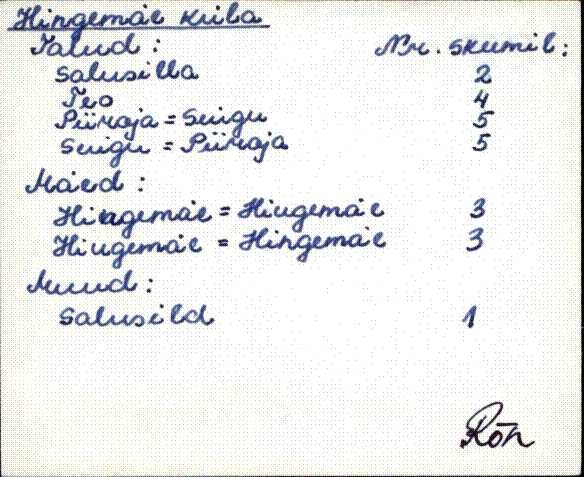 Hingemäe küla
Talud: Nr. skeemil:
Salusilla 2
Teo 4
Piiroja = Suigu 5
Suigu = Piiroja 5
Mäed:
Hingemäe = Hiugemäe 3
Hiugemäe = Hingemäe 3
Muud:
Salusild 1
Rõn